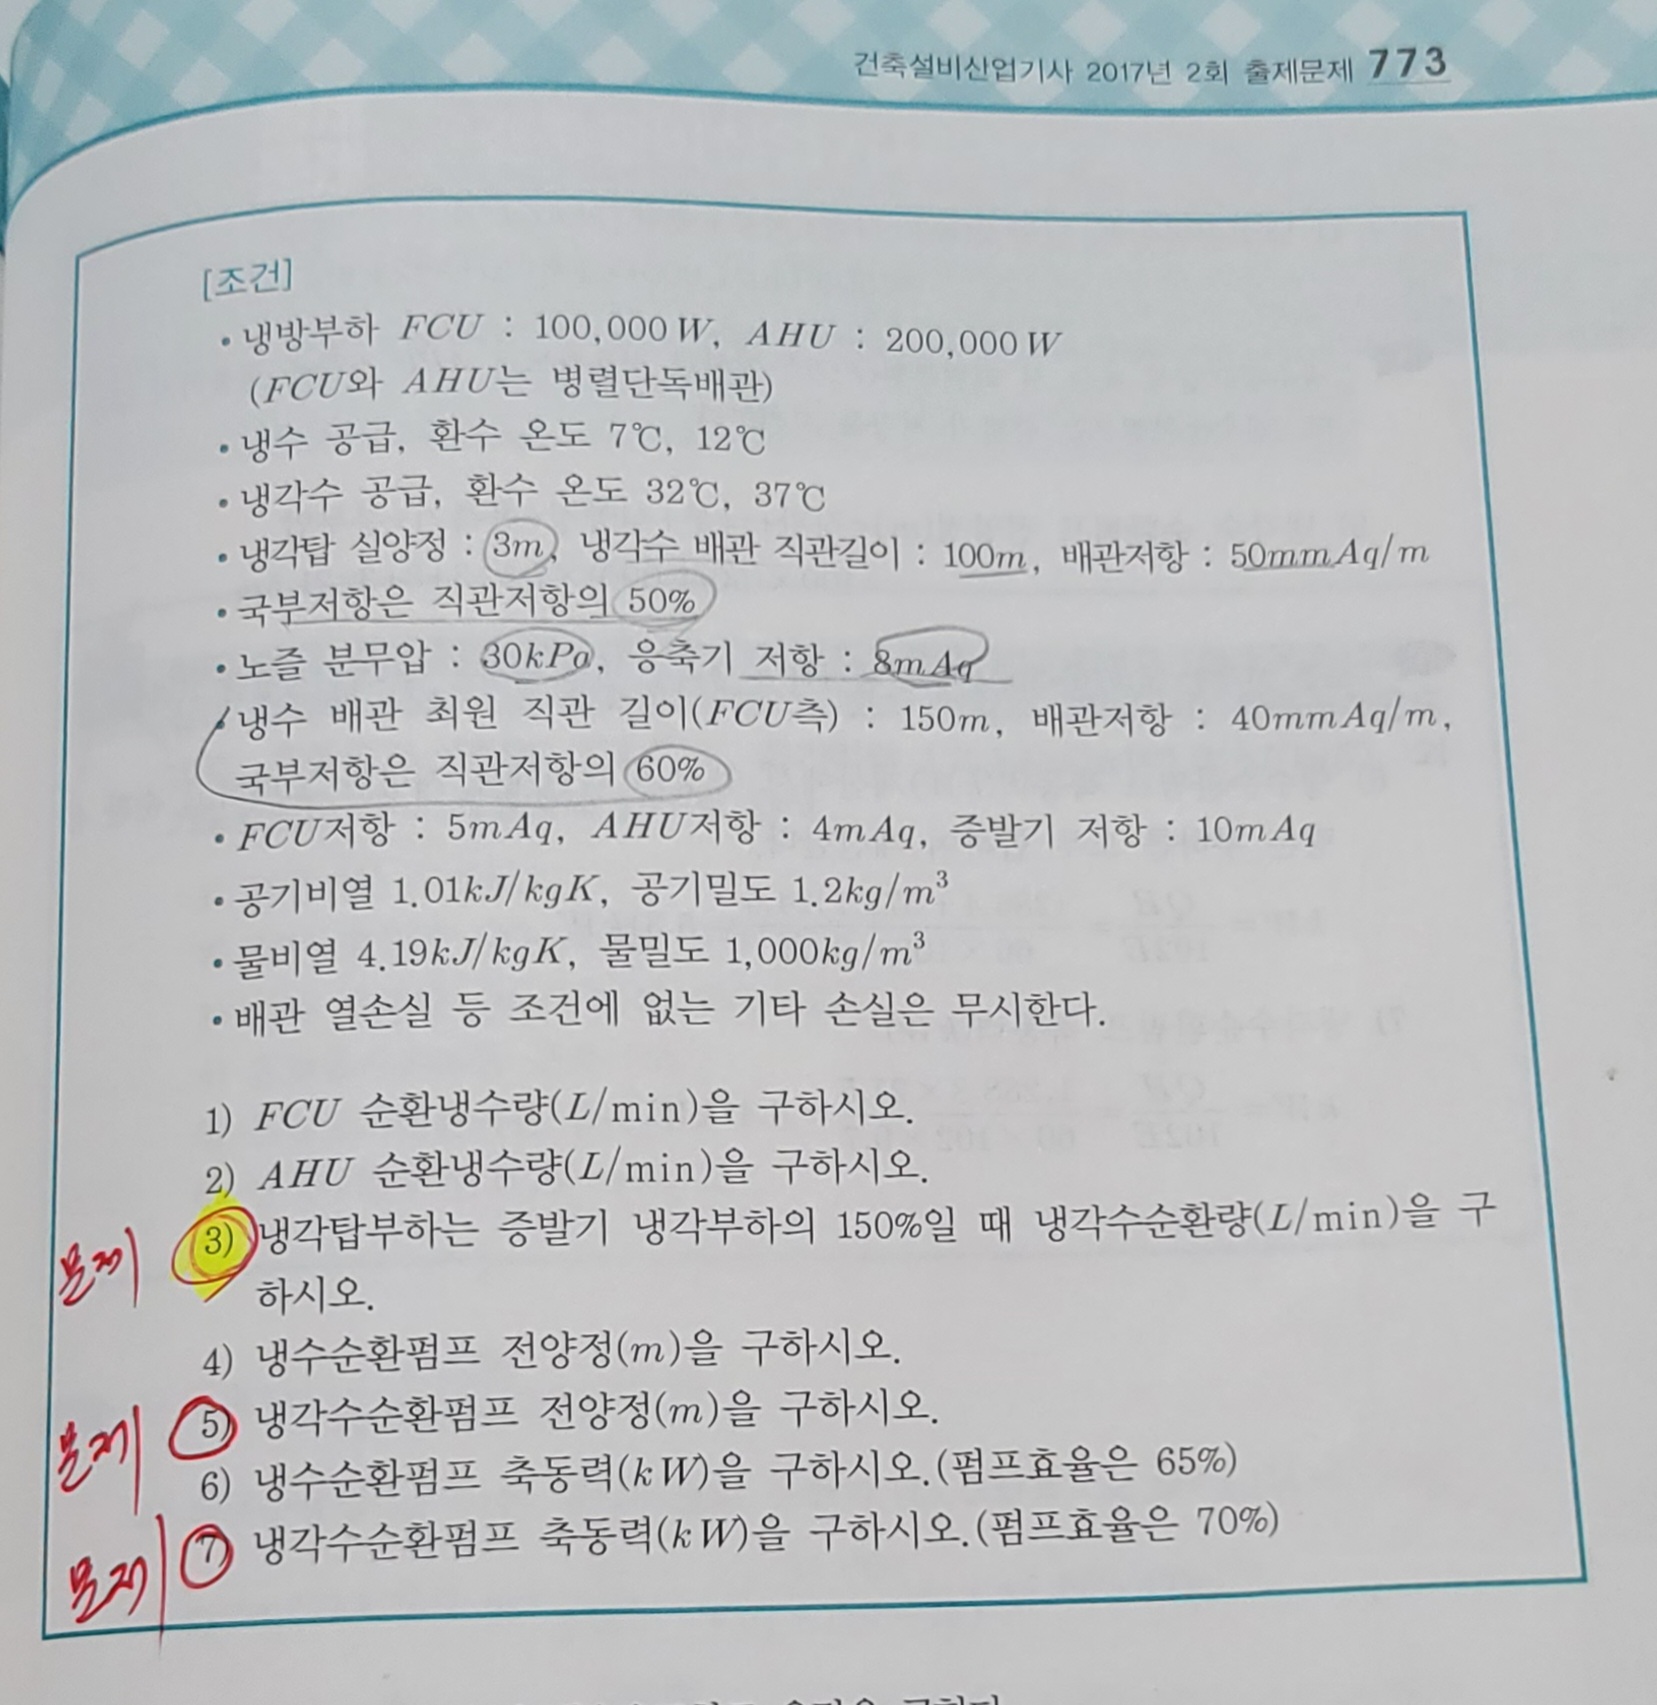 건축설비산업기사 2017년 2회 출제문제 773
[조건]
• 냉방부하 FCU : 100,000W, AHU : 200,000W
(FCU와 AHU는 병렬단독배관)
• 냉수 공급, 환수 온도 7℃, 12℃
• 냉각수 공급, 환수 온도 32℃, 37℃
• 냉각탑 실양정 : 3m, 냉각수 배관 직관길이 : 100m, 배관저항 : 50mmAq/m
• 국부저항은 직관저항의 50%
• 노즐 분무압 : 30kPa, 응축기 저항 : 8mAq
• 냉수 배관 최원 직관 길이(FCU측) : 150m, 배관저항 : 40mmAq/m,
국부저항은 직관저항의 60%
• FCU저항 : 5mAq, AHU저항 : 4mAq, 증발기 저항 : 10mAq
• 공기비열 1.01kJ/kgK, 공기밀도 1.2kg/m³
• 물비열 4.19kJ/kgK, 물밀도 1,000kg/m³
• 배관 열손실 등 조건에 없는 기타 손실은 무시한다.
1) FCU 순환냉수량(L/min)을 구하시오.
2) AHU 순환냉수량(L/min)을 구하시오.
문제 3) 냉각탑부하는 증발기 냉각부하의 150%일 때 냉각수순환량(L/min)을 구
하시오.
4) 냉수순환펌프 전양정(m)을 구하시오.
문제 5) 냉각수순환펌프 전양정(m)을 구하시오.
6) 냉수순환펌프 축동력(kW)을 구하시오.(펌프효율은 65%)
문제 7) 냉각수순환펌프 축동력(kW)을 구하시오.(펌프효율은 70%)